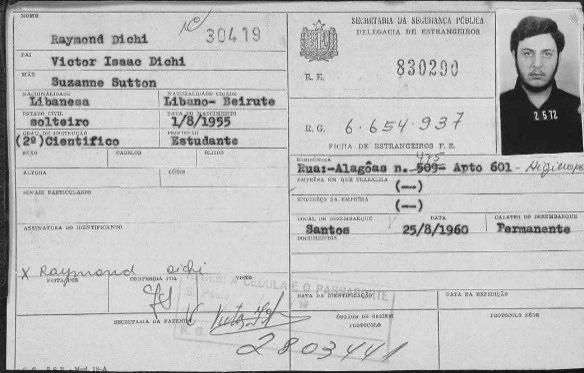 NOME
Raymond Dichi
30419
PAI
Victor Isaac Dichi
MÃE
Suzanne Sutton
NACIONALIDADE
NATURALIDADE CIDADE
Libanesa
Libano- Beirute
ESTADO CIVIL
DATA DO NASCIMENTO
solteiro
1/8/1955
GRAU DE INSTRUÇÃO
PROFISSÃO
(2º) Cientifico
Estudante
SEXO
CABELOS
OLHOS
ALTURA
CÚTIS
SINAIS PARTICULARES
ASSINATURA DO IDENTIFICANDO
X Raymond Dichi
FEITA POR
CONFERIDA POR
VISTO
SECRETARIA DA FAZENDA
Mod. 18-A
SECRETARIA DA SEGURANÇA PÚBLICA
DELEGACIA DE ESTRANGEIROS
R. E.
830290
R. G.
6.654.937
FICHA DE ESTRANGEIROS P. E.
2 5 72
RESIDÊNCIA
475
Rua:-Alagôas n. 509- Apto 601 -
EMPRÊSA EM QUE TRABALHA
(--)
ENDERÊÇO DA EMPRÊSA
(--)
LOCAL DE DESEMBARQUE
DATA
CARATER DO DESEMBARQUE
Santos
25/8/1960
Permanente
DOCUMENTOS
A CEDULA E O PASSAPORTE
DATA DA IDENTIFICAÇÃO
DATA DA EXPEDIÇÃO
ÓRGÃO DE ORIGEM
PROTOCOLO
PROTOCOLO RÉUS
2803441